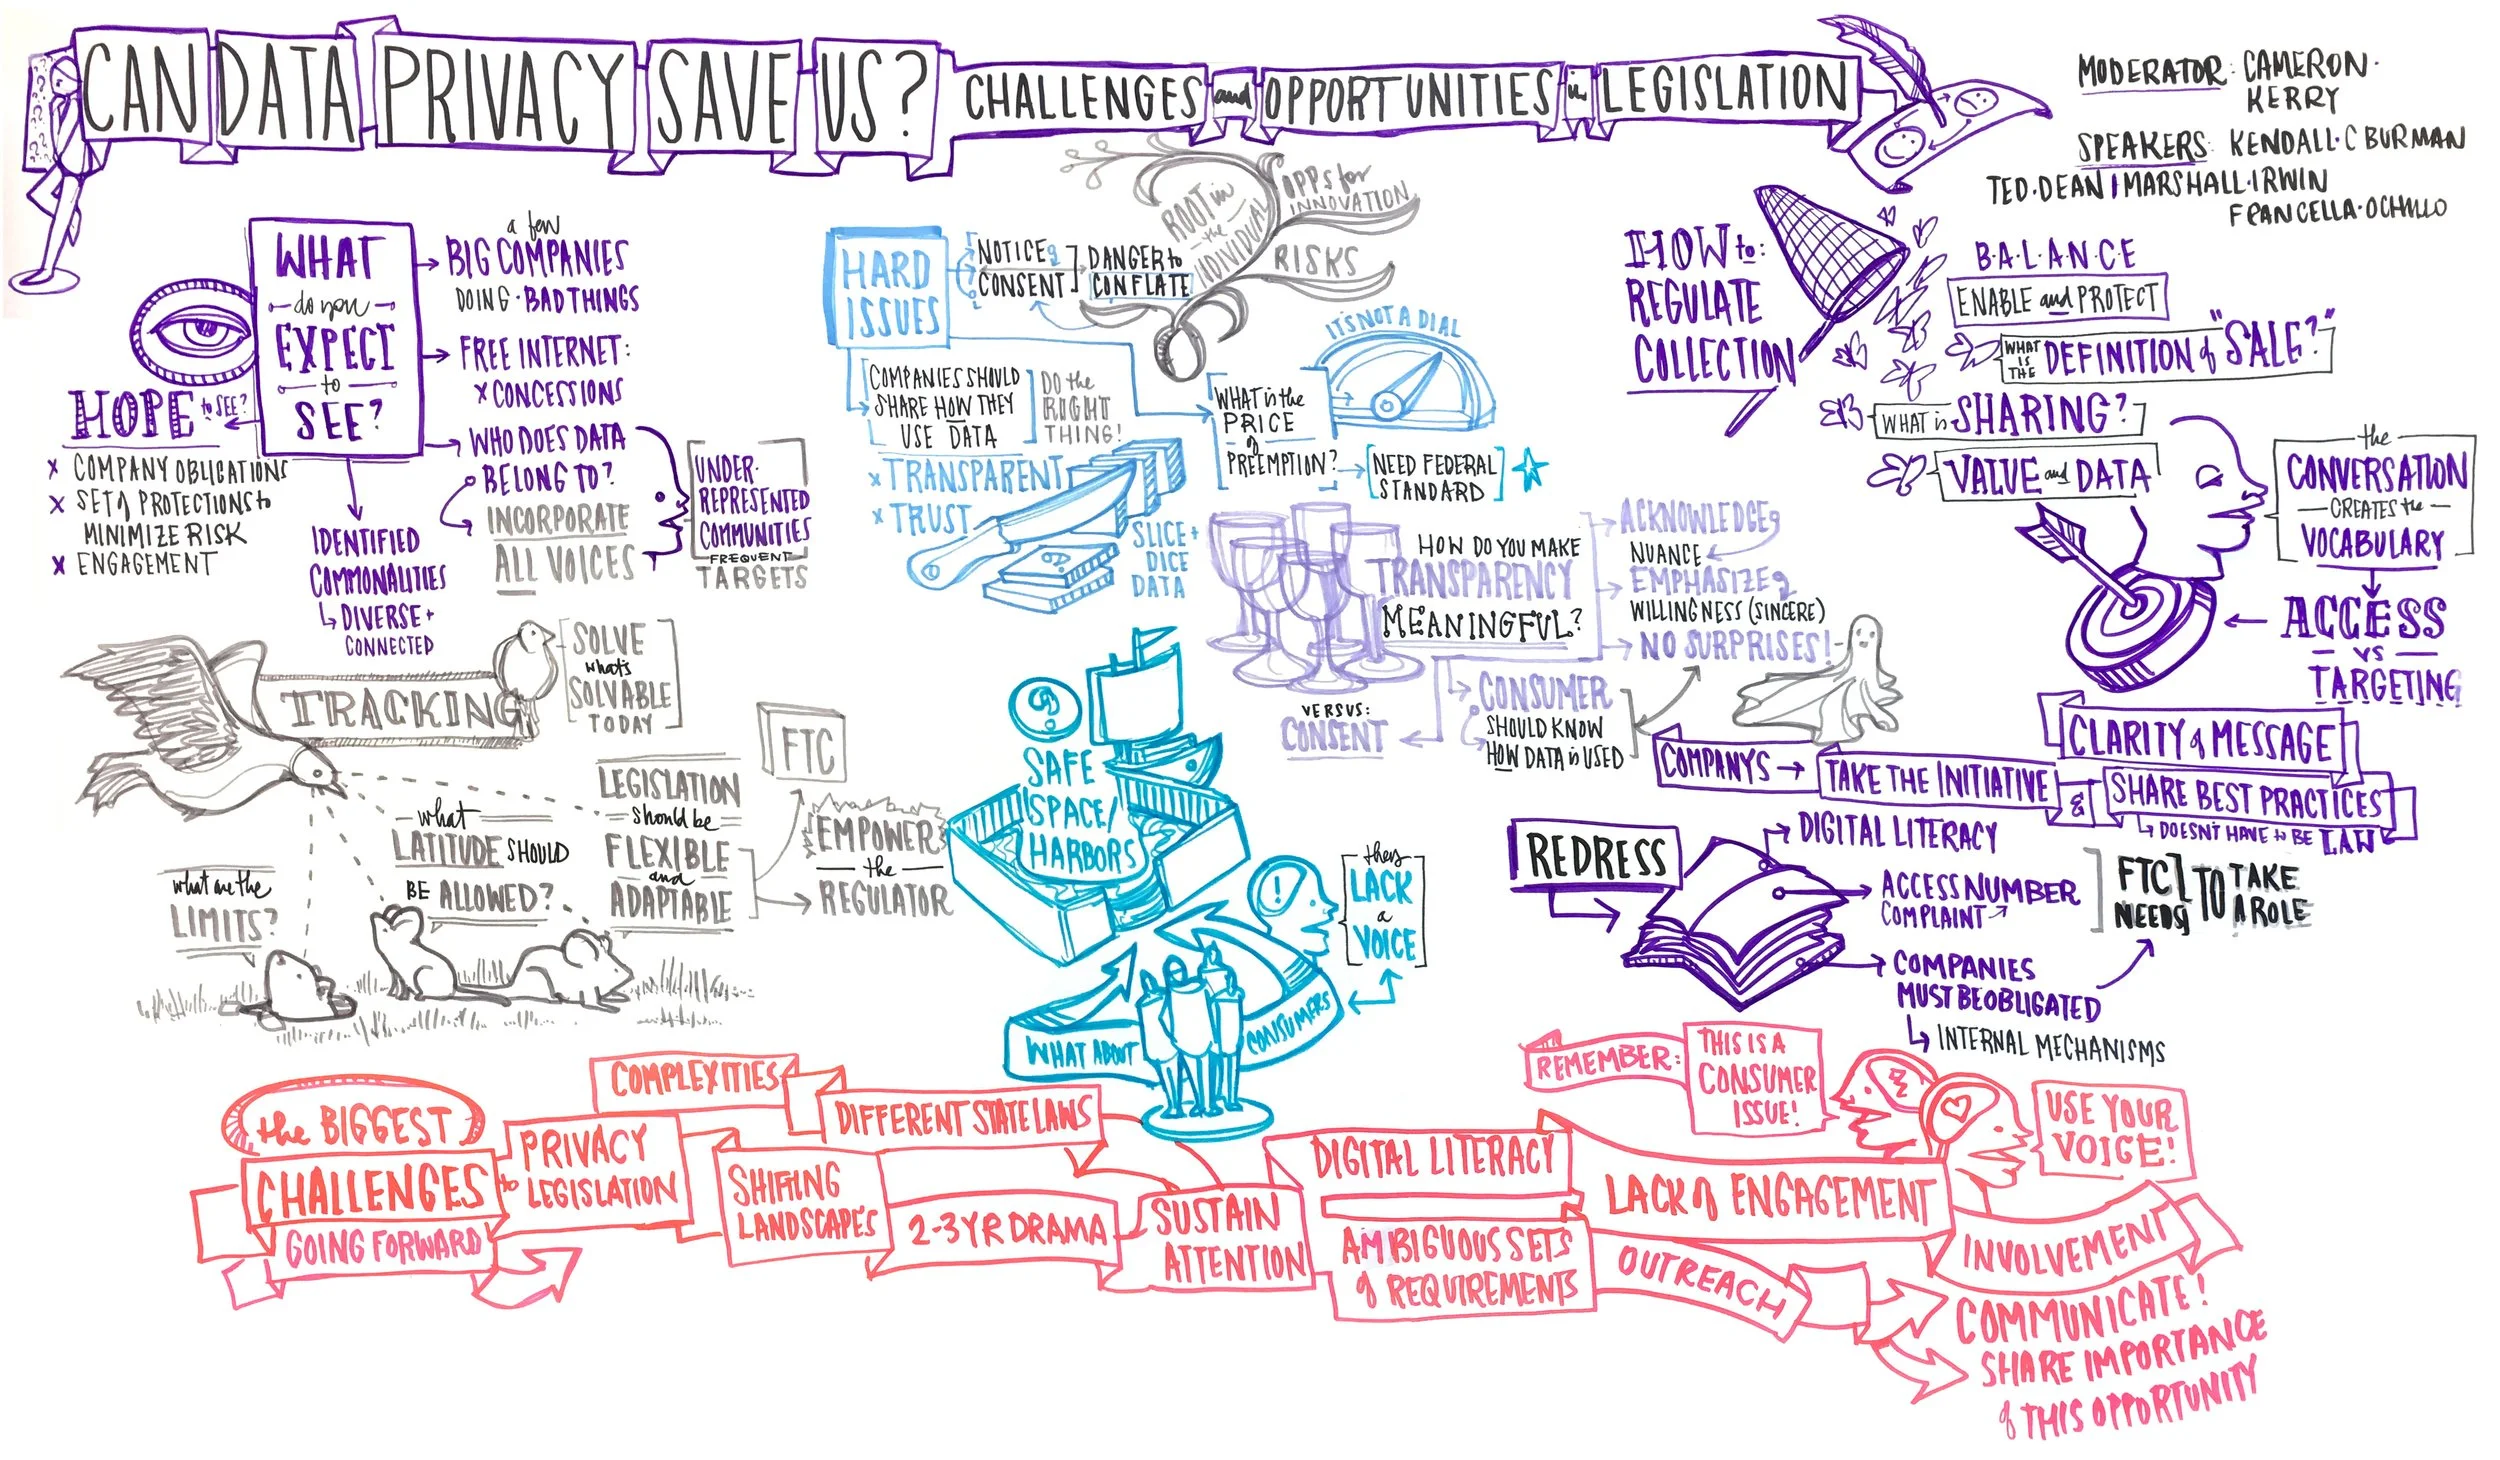 CAN DATA PRIVACY SAVE US? CHALLENGES and OPPORTUNITIES in LEGISLATION
MODERATOR: CAMERON·
KERRY
SPEAKERS: KENDALL·C BURMAN
TED·DEAN | MARSHALL·IRWIN
FRANCELLA·OCHILLO
WHAT
do you
EXPECT
to
SEE?
a few
BIG COMPANIES
DOING·BAD THINGS
FREE INTERNET:
x CONCESSIONS
WHO DOES DATA
BELONG TO?
INCORPORATE
ALL VOICES
UNDER·
REPRESENTED
COMMUNITIES
FREQUENT
TARGETS
HOPE to SEE?
x COMPANY OBLIGATIONS
x SET of PROTECTIONS to
MINIMIZE RISK
x ENGAGEMENT
IDENTIFIED
COMMONALITIES
DIVERSE +
CONNECTED
TRACKING
SOLVE
what's
SOLVABLE
TODAY
what are the
LIMITS?
what
LATITUDE SHOULD
BE ALLOWED?
LEGISLATION
should be
FLEXIBLE
and
ADAPTABLE
FTC
EMPOWER
the
REGULATOR
HARD
ISSUES
NOTICE &
CONSENT
DANGER to
CONFLATE
ROOT in
the
INDIVIDUAL
OPPS for
INNOVATION
RISKS
COMPANIES SHOULD
SHARE HOW THEY
USE DATA
DO the
RIGHT
THING!
x TRANSPARENT
x TRUST
SLICE +
DICE
DATA
WHAT is the
PRICE
of
PREEMPTION?
IT'S NOT A DIAL
NEED FEDERAL
STANDARD
HOW DO YOU MAKE
TRANSPARENCY
MEANINGFUL?
ACKNOWLEDGE &
NUANCE
EMPHASIZE &
WILLINGNESS (SINCERE)
NO SURPRISES!
CONSUMER
SHOULD KNOW
HOW DATA is USED
VERSUS:
CONSENT
?
SAFE
SPACE/
HARBORS
!
they
LACK
a
VOICE
WHAT ABOUT
CONSUMERS
HOW to:
REGULATE
COLLECTION
B·A·L·A·N·C·E
ENABLE and PROTECT
WHAT IS THE DEFINITION of "SALE?"
WHAT is SHARING?
VALUE and DATA
the
CONVERSATION
CREATES the
VOCABULARY
ACCESS
VS
TARGETING
CLARITY of MESSAGE
COMPANYS → TAKE THE INITIATIVE
& SHARE BEST PRACTICES
DOESN'T HAVE to BE LAW
REDRESS
DIGITAL LITERACY
ACCESS NUMBER
COMPLAINT
COMPANIES
MUST BE OBLIGATED
INTERNAL MECHANISMS
FTC
NEEDS
TO TAKE
A ROLE
REMEMBER:
THIS IS A
CONSUMER
ISSUE!
USE YOUR
VOICE!
the BIGGEST
CHALLENGES
GOING FORWARD
to
PRIVACY
LEGISLATION
COMPLEXITIES
DIFFERENT STATE LAWS
SHIFTING
LANDSCAPES
2-3 YR DRAMA
SUSTAIN
ATTENTION
DIGITAL LITERACY
AMBIGUOUS SETS
of REQUIREMENTS
LACK of ENGAGEMENT
OUTREACH
INVOLVEMENT
COMMUNICATE!
SHARE IMPORTANCE
of THIS OPPORTUNITY